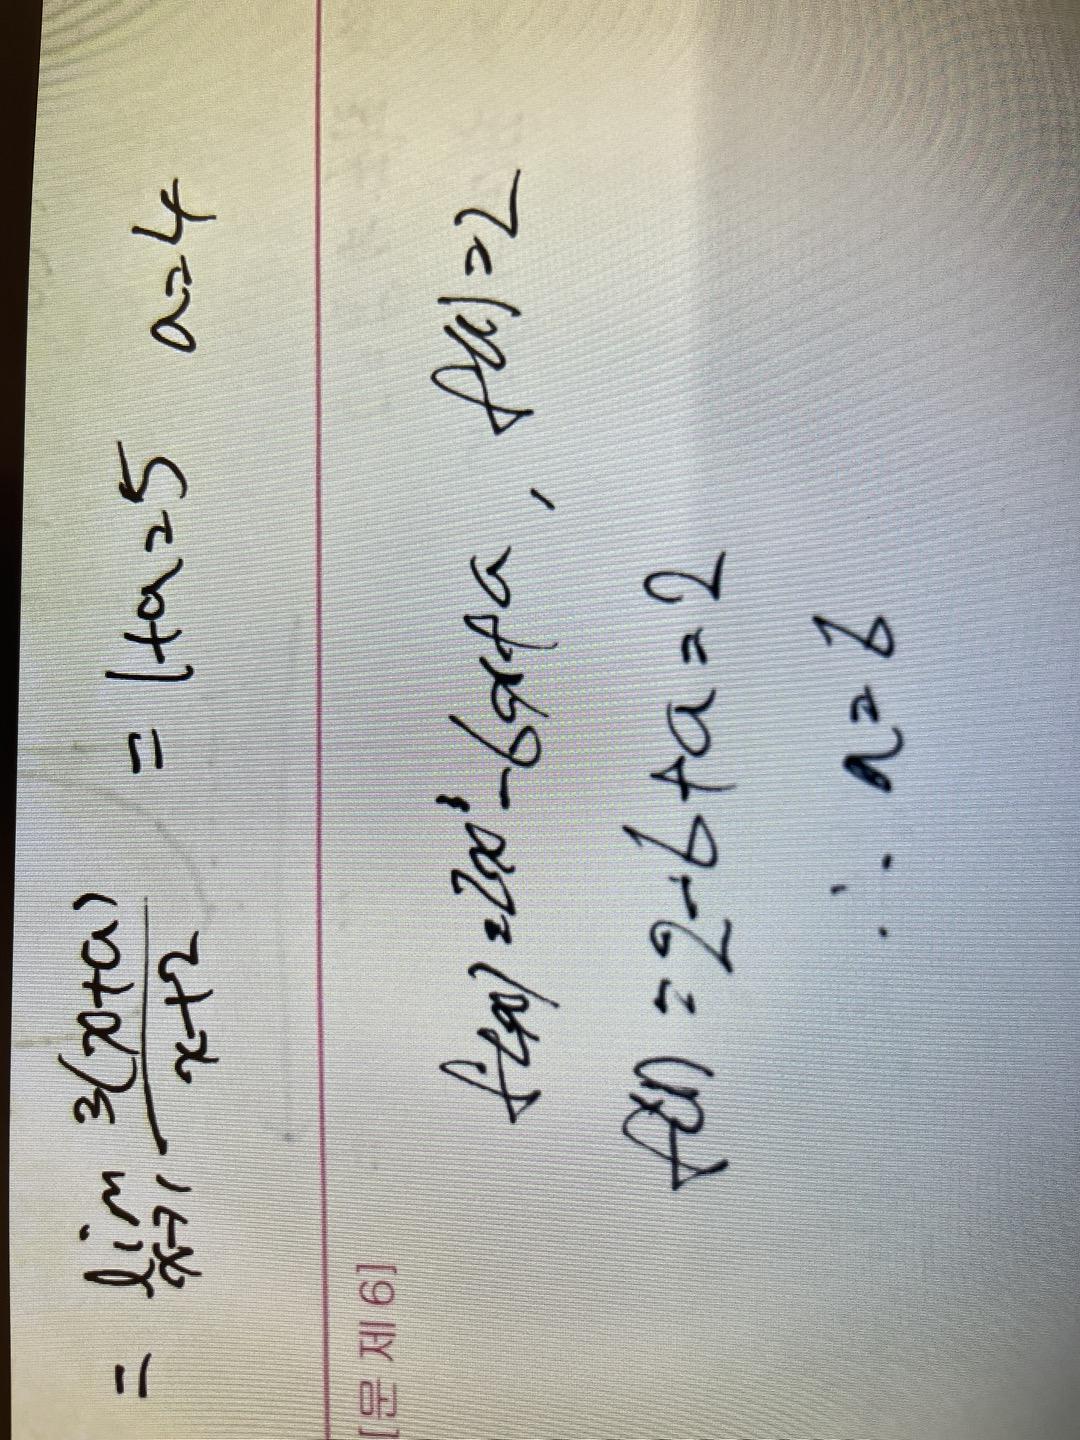 = lim x→1 3(x+a)/x+2 = 1+a=5 a=4
[문제6]
f(x)=2x³-6x+a, f(x)=2
f(x)=2-6+a=2
∴ a=6